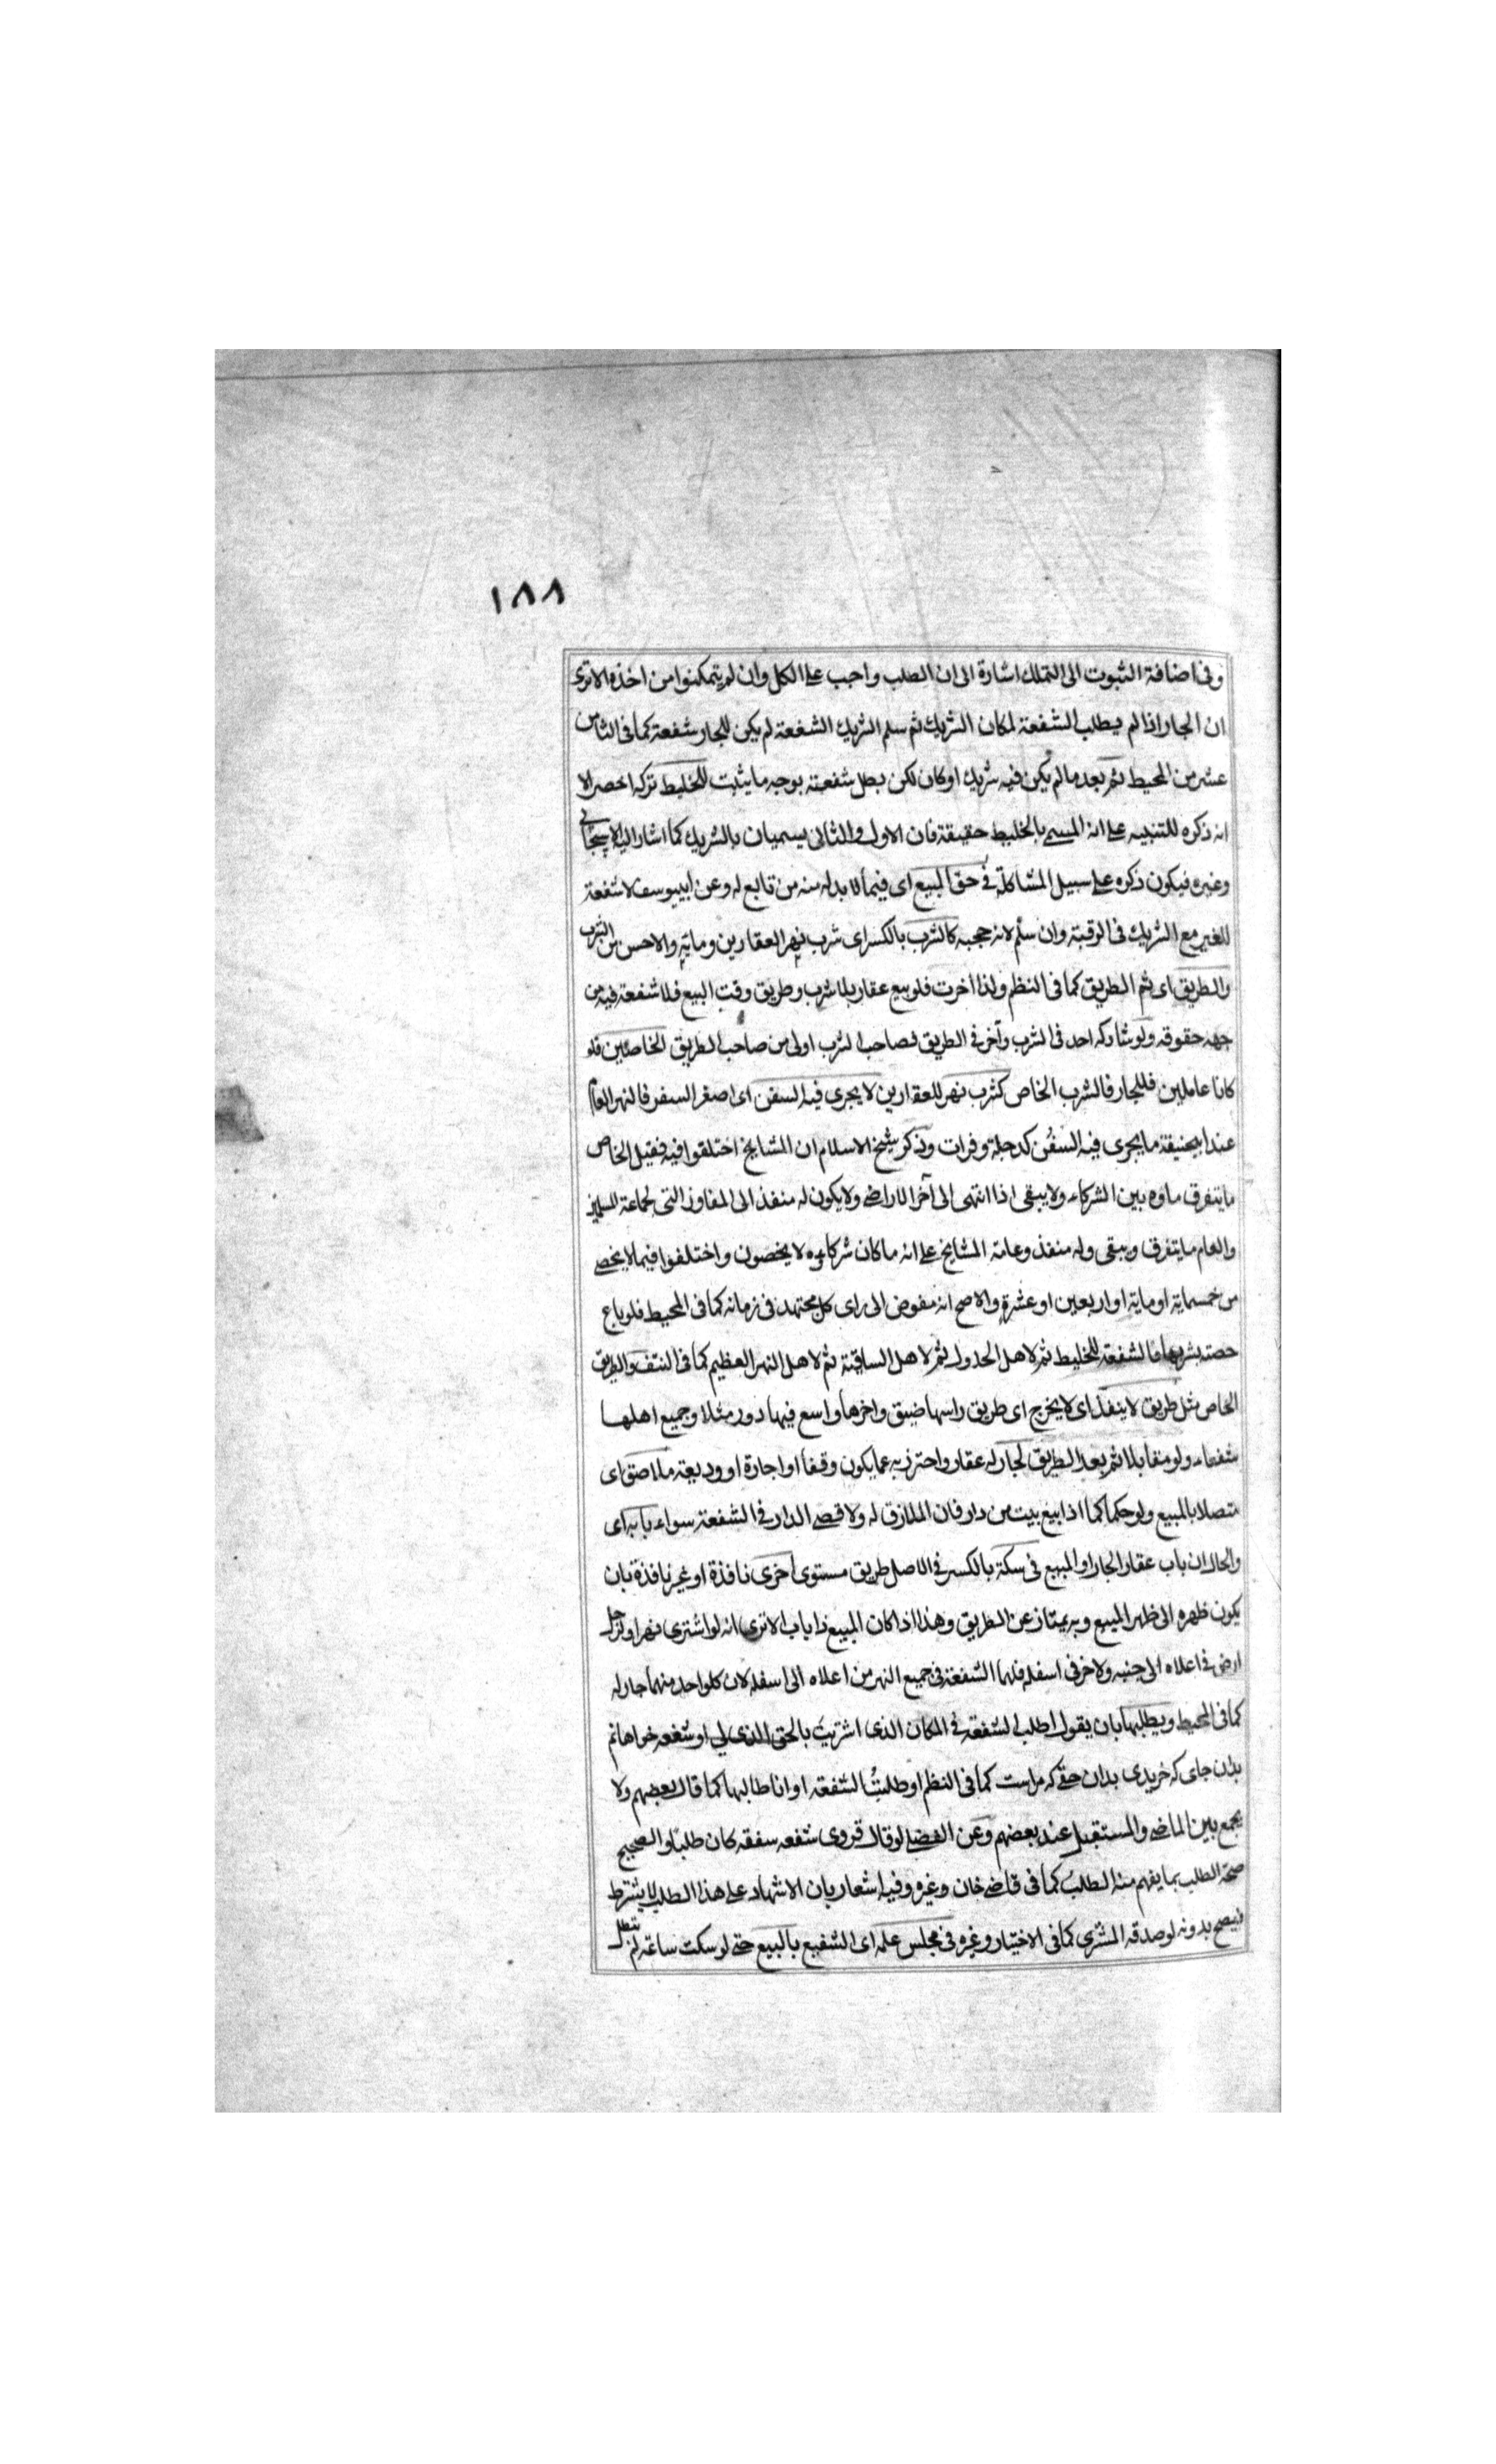 ١٨٨
وفى اضافة الثبوت الى التملك اشارة الى ان الطلب واجب على الكل وان لم يتمكنوا من اخذه الا ترى
ان الجار اذا لم يطلب الشفعة لمكان الشريك ثم سلم الشريك الشفعة لم يكن للجار شفعة كما فى الثامن
عشر من المحيط ثم بعد ما لم يكن فيه شريك او كان لكن بطل شفعته بوجه ما يثبت للخليط تركه اخصر الا
انه ذكره للتنبيه على انه المسمى بالخليط حقيقة فان الاول والثانى يسميان بالشريك كما اشار اليه الاسبيجابى
وغيره فيكون ذكره على سبيل المشاكلة فى حق المبيع اى فيما لا بد له منه من تابع له وعن ابيوسف لا شفعة
للغير مع الشريك فى الرقبة وان سلم لانه حجبه كالشرب بالكسر اى شرب نهر العقارين ومائه والاحسن من الشرب
والطريق اى ثم الطريق كما فى النظم ولذا اخرت فلو بيع عقار بلا شرب وطريق وقت البيع فلا شفعة فيه من
جهة حقوقه ولو شاركه احد فى الشرب وآخر فى الطريق فصاحب الشرب اولى من صاحب الطريق الخاصين فلو
كانا عاملين فللجار فالشرب الخاص كشرب نهر للعقارين لا يجرى فيه السفن اى اصغر السفر فالنهر العام
عند ابيحنيفة ما يجرى فيه السفن كدجلة وفرات وذكر شيخ الاسلام ان المشايخ اختلفوا فيه فقيل الخاص
ما يتفرق ماؤه بين الشركاء ولا يبقى اذا انتهى الى آخر الاراضى ولا يكون له منفذ الى المفاوز التى لجماعة المسلمين
والعام ما يتفرق ويبقى وله منفذ وعامة المشايخ على انه ما كان شركاؤه لا يحصون واختلفوا فيما لا يحصى
من خمسماية او ماية او اربعين او عشرة والاصح انه مفوض الى راى كل مجتهد فى زمانه كما فى المحيط فلو باع
حصته بشربها فالشفعة للخليط ثم لاهل الجدول ثم لاهل الساقية ثم لاهل النهر العظيم كما فى النتف والطريق
الخاص مثل طريق لا ينفذ اى لا يخرج اى طريق راسها ضيق واخرها واسع فيها دور مثلا وجميع اهلها
شفعاء ولو متقابلا ثم بعد الطريق لجار له عقار واحترز به عما يكون وقفا او اجارة او وديعة ملاصق اى
متصلا بالمبيع ولو حكما كما اذا بيع بيت من دار فان الملازق له ولاقصى الدار فى الشفعة سواء بابه اى
والحال ان باب عقار الجار او المبيع فى سكة بالكسر فى الاصل طريق مستوى اخرى نافذة او غير نافذة بان
يكون ظهره الى ظهر المبيع وبه يمتاز عن الطريق وهذا اذا كان المبيع ذا باب الا ترى انه لو اشترى نهرا ولرجل
ارض فى اعلاه الى جنبه ولاخر فى اسفله فلهما الشفعة فى جميع النهر من اعلاه الى اسفله لان كلو احد منهما جار له
كما فى المحيط ويطلبها بان يقول اطلب الشفعة فى المكان الذى اشتريت بالحق الذى لى او شفعه خواهانم
بدان جاى كه خريدى بدان حقى كه مراست كما فى النظم او طلبت الشفعة او انا طالبها كما قال بعضهم ولا
يجمع بين الماضى والمستقبل عند بعضهم وعن الفضلى لو قال قروى شفعه سفقه كان طلبا والصحيح
صحة الطلب بما يفهم منه الطلب كما فى قاضى خان وغيره وفيه اشعار بان الاشهاد على هذا الطلب لا يشترط
فيصح بدونه لو صدقه المشترى كما فى الاختيار وغيره فى مجلس علمه اى الشفيع بالبيع حتى لو سكت ساعة لم تبطل